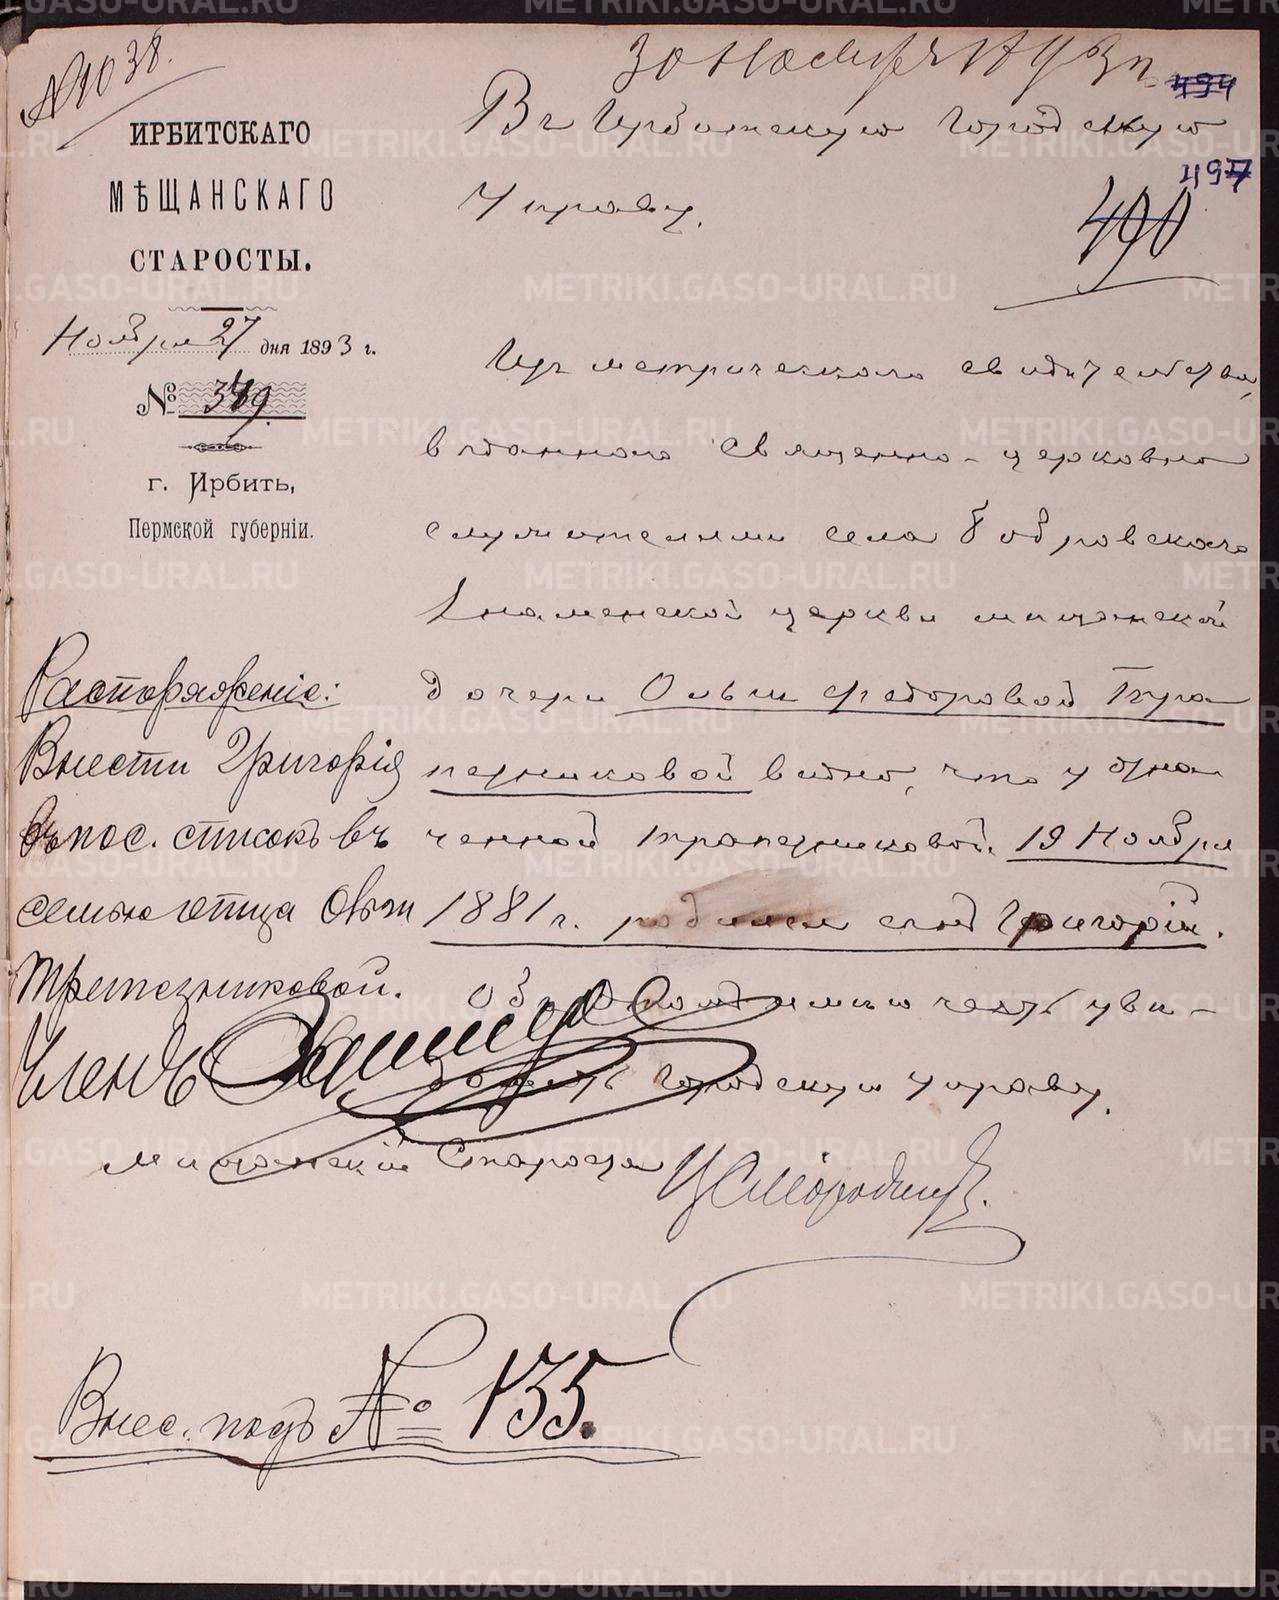 № 1038.
30 Ноября 1893 г.
494
Въ Ирбитскую Городскую
497
Управу.
490
ИРБИТСКАГО
МѢЩАНСКАГО
СТАРОСТЫ.
Ноября 27 дня 1893 г.
№ 379.
г. Ирбить,
Пермской губерніи.
Изъ метрическаго свидѣтельства,
выданнаго священно-церковно
служителями села Бобровскаго
Знаменской церкви мѣщанской
дочери Ольги Федоровой Тра
пезниковой видно, что у озна
ченной Трапезниковой 19 Ноября
1881 г. родился сынъ Григорій.
Объ честь увѣ-
Городскую Управу.
Мѣщанскій Староста
Распоряженіе:
Внести Григорія
въ пос. списокъ въ
семью отца
Трапезниковой.
Членъ
Внес. подъ № 135.
METRIKI.GASO-URAL.RU